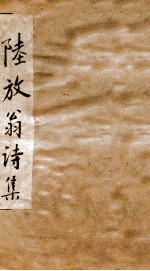 陸放翁诗集